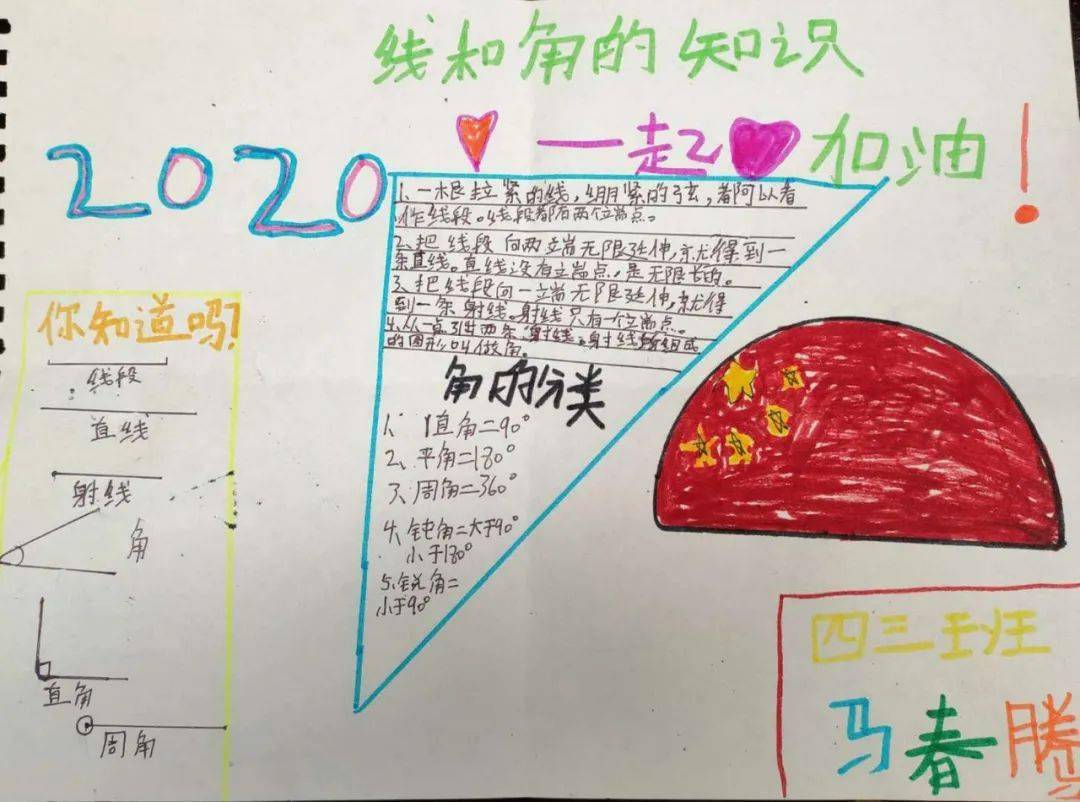 线和角的知识
2020 一起 加油!
1、一根拉紧的线,绷紧的弦,都可以看
作线段。线段都有两个端点。
2、把线段向两端无限延伸,就得到一
条直线。直线没有端点,是无限长的。
3、把线段向一端无限延伸,就得
到一条射线。射线只有一个端点。
4、从一点引出两条射线。射线所组成
的图形叫做角。
角的分类
1、直角=90°
2、平角=180°
3、周角=360°
4、钝角=大于90°
小于180°
5、锐角=
小于90°
你知道吗?
线段
直线
射线
角
直角
周角
四三班
马春腾